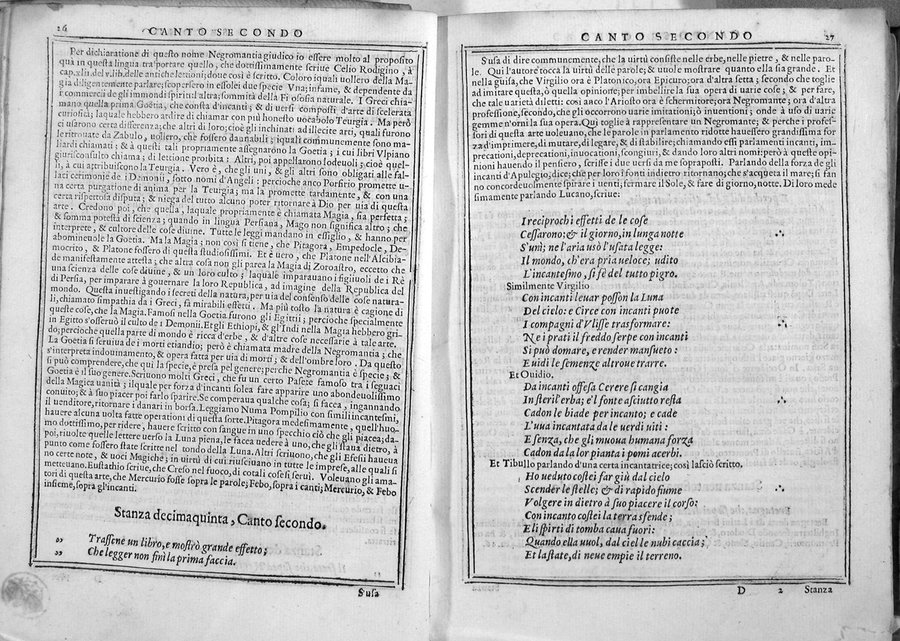 26 CANTO SECONDO
Per dichiaratione di questo nome Negromantia giudico io essere molto al proposito
quà in questa lingua traportare quello, che dottissimamente scriue Celio Rodigino, à
cap. xlii. del v. lib. delle antiche lettioni; doue così è scritto. Coloro iquali uollero della Ma-
gia diligentemente parlare; scopersero in essere due specie Vna; infame, & dependente da
i commerci de gli immondi spiriti: l'altra; sommità della Filosofia naturale. I Greci chia-
mano quella prima Goëtia, che consta d'incanti; & di uersi composti d'arte di scelerata
curiosità; laquale hebbero ardire di chiamar con più honesto uocabolo Teurgia. Ma però
ci usarono certa differenza; che altri di loro; cioè gli inchinati ad illecite arti, quali furono
le ritrouate da Zabulo, uollero, che fossero dannabili; iquali communemente sono ma-
liardi chiamati; & à questi tali propriamente assegnarono la Goetia; i cui libri Vlpiano
giurisconsulto chiama; di lettione proibita: Altri, poi appellarono lodeuoli; cioè quel-
li, à cui attribuiscono la Teurgia. Vero è, che gli uni, & gli altri sono obligati alle fal-
laci cerimonie de i Demonii, sotto nomi d'Angeli: percioche anco Porfirio promette u-
na certa purgatione di anima per la Teurgia; ma la promette tardamente, & con una
certa rispettosa disputa; & niega del tutto alcuno poter ritornare à Dio per uia di questa
arte. Credono poi, che quella, laquale propriamente è chiamata Magia, sia perfetta;
& somma potestà di scienza; quando in lingua Persiana, Mago non significa altro; che
interprete, & cultore delle cose diuine. Tutte le leggi mandano in essiglio, & hanno per
abomineuole la Goetia. Ma la Magia; non così si tiene, che Pitagora, Empedocle, De-
mocrito, & Platone fossero di questa studiosissimi. Et è uero, che Platone nell'Alcibia-
de manifestamente attesta; che altra cosa non gli parea la Magia di Zoroastro, eccetto che
una scienza delle cose diuine, & un loro culto; laquale imparauano i figliuoli de i Rè
di Persia, per imparare à gouernare la loro Republica, ad imagine della Republica del
mondo. Questa inuestigando i secreti della natura, per uia del consenso delle cose natura-
li, chiamato simpathia da i Greci, fà mirabili effetti. Ma più tosto la natura è cagione di
queste cose, che la Magia. Famosi nella Goetia furono gli Egittii; percioche specialmente
in Egitto s'osseruò il culto de i Demonii. Et gli Ethiopi, & gl'Indi nella Magia hebbero gri-
do; percioche quella parte di mondo è ricca d'erbe, & d'altre cose necessarie à tale arte.
La Goetia si seruiua de i morti etiandio; però è chiamata madre della Negromantia; che
s'interpreta indouinamento, & opera fatta per uia di morti; & dell'ombre loro. Da questo
si può comprendere, che quì la specie, è presa pel genere; perche Negromantia è specie; &
Goetia è il suo genere. Scriuono molti Greci, che fu un certo Pasete famoso tra i seguaci
della Magica uanità; ilquale per forza d'incanti solea fare apparire uno abondeuolissimo
conuito; & à suo piacer poi farlo sparire. Se comperaua qualche cosa; si facea, ingannando
il uenditore, ritornare i danari in borsa. Leggiamo Numa Pompilio con simili incantesmi,
hauere alcuna uolta fatte operationi di questa sorte. Pitagora medesimamente, quell'huo-
mo dottissimo, per ridere, hauere scritto con sangue in uno specchio ciò che gli piacea; da-
poi, riuolte quelle lettere uerso la Luna piena, le facea uedere à uno, che gli staua dietro, à
punto come fossero state scritte nel tondo della Luna. Altri scriuono, che gli Efesii haueua
no certe note, & uoci Magiche; in uirtù di cui riusciuano in tutte le imprese, alle quali si
metteuano. Eustathio scriue, che Creso nel fuoco, di cotali cose si seruì. Voleuano gli ama-
tori di questa arte, che Mercurio fosse sopra le parole; Febo, sopra i canti; Mercurio, & Febo
insieme, sopra gl'incanti.
Stanza decimaquinta, Canto secondo.
„ Trassene un libro, e mostrò grande effetto;
„ Che legger non finì la prima faccia.
S'usa
CANTO SECONDO 27
S'usa di dire communemente, che la uirtù consiste nelle erbe, nelle pietre, & nelle paro-
le. Quì l'autore tocca la uirtù delle parole; & uuole mostrare quanto ella sia grande. Et
nella guisa, che Virgilio ora è Platonico, ora Epicuro; ora d'altra setta; secondo che toglie
ad imitare questa, ò quella opinione; per imbellire la sua opera di uarie cose; & per fare,
che tale uarietà diletti: così anco l'Ariosto ora è schermitore; ora Negromante; ora d'altra
professione, secondo, che gli occorrono uarie imitationi; ò inuentioni; onde à uso di uarie
gemme n'orni la sua opera. Quì toglie à rappresentare un Negromante; & perche i profes-
sori di questa arte uoleuano, che le parole in parlamento ridotte hauessero grandissima for
za d'imprimere, di mutare, di legare, & di stabilire; chiamando essi parlamenti incanti, im-
precationi, deprecationi, inuocationi, scongiuri, & dando loro altri nomi: però à queste opi-
nioni hauendo il pensiero, scrisse i due uersi da me soprapostl. Parlando della forza de gli
incanti d'Apulegio, dice; che per loro i fonti indietro ritornano; che s'acqueta il mare; si fan
no concordeuolmente spirare i uenti, fermare il Sole, & fare di giorno, notte. Di loro mede
simamente parlando Lucano, scriue:
I reciprochi effetti de le cose
Cessarono: & il giorno, in lunga notte
S'unì; ne l'aria usò l'usata legge:
Il mondo, ch'era pria ueloce; udito
L'incantesmo, si fè del tutto pigro.
Similmente Virgilio
Con incanti leuar posson la Luna
Del cielo: e Circe con incanti puote
I compagni d'Vlisse trasformare:
Ne i prati il freddo serpe con incanti
Si può domare, e render mansueto:
E uidi le semenze altroue trarre.
Et Ouidio.
Da incanti offesa Cerere si cangia
In steril'erba; e'l fonte asciutto resta
Cadon le biade per incanto; e cade
L'uua incantata da le uerdi uiti:
E senza, che gli muoua humana forza
Cadon da la lor pianta i pomi acerbi.
Et Tibullo parlando d'una certa incantatrice; così lasciò scritto.
Ho ueduto costei far giù dal cielo
Scender le stelle; & di rapido fiume
Volgere in dietro à suo piacere il corso:
Con incanto costei la terra fende;
E li spirti di tomba caua fuori:
Quando ella uuol, dal ciel le nubi caccia;
Et lastate, di neue empie il terreno.
D 2 Stanza